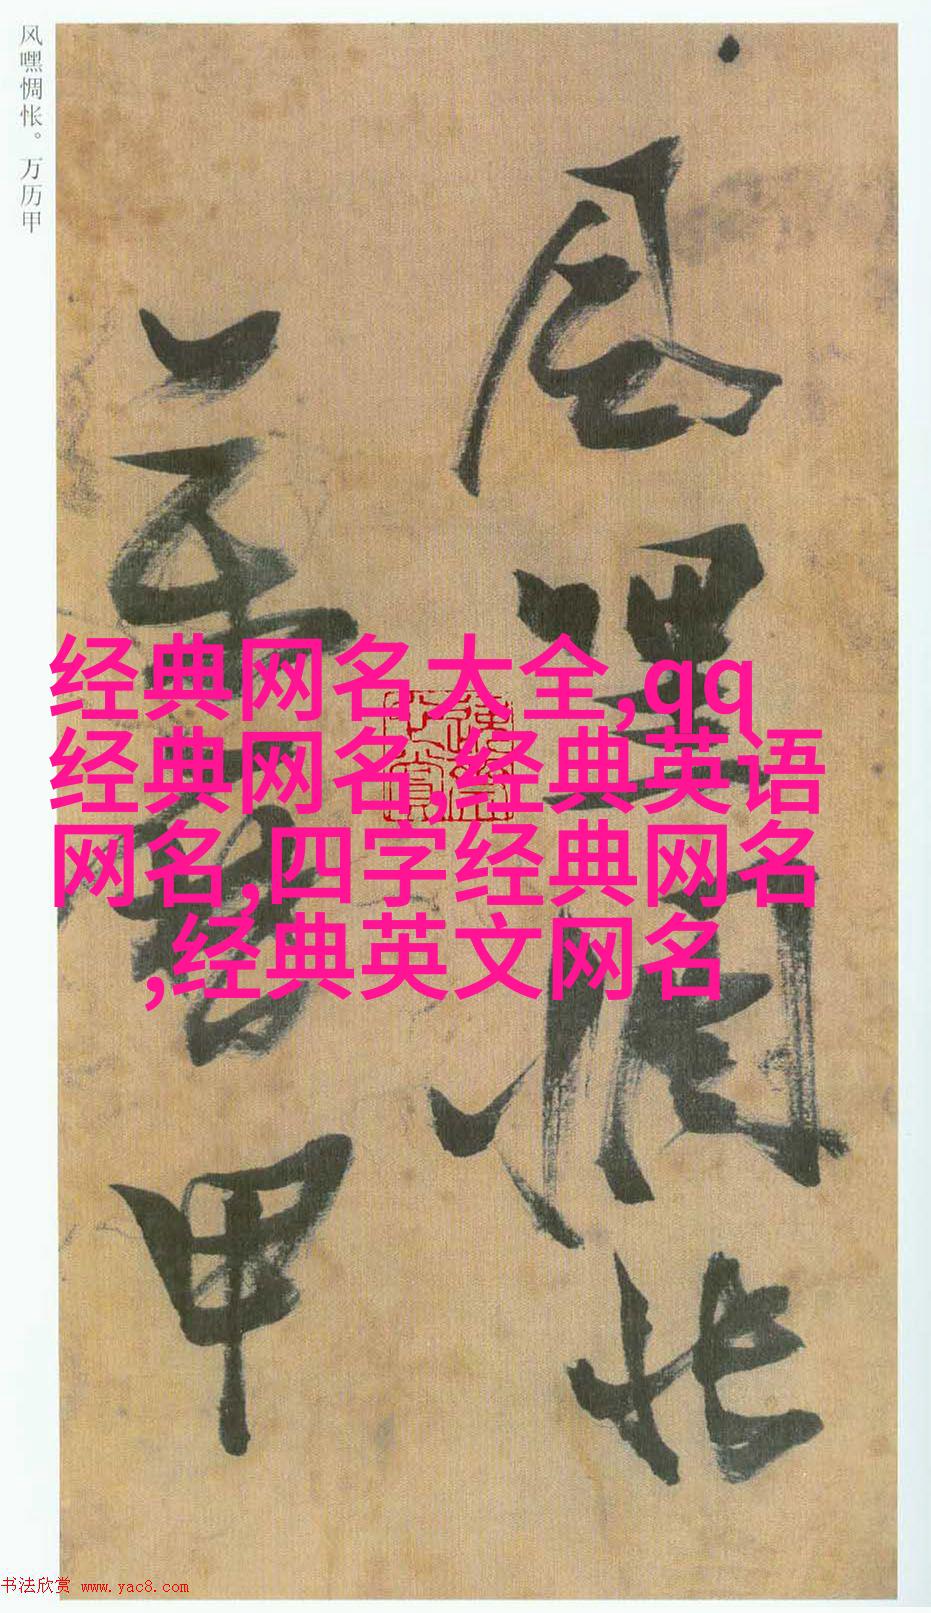 风嘿惆怅。万历甲
风嘿惆怅
万历甲
经典网名大全,qq
经典网名,经典英语
网名,四字经典网名
,经典英文网名
书法欣赏 www.yac8.com